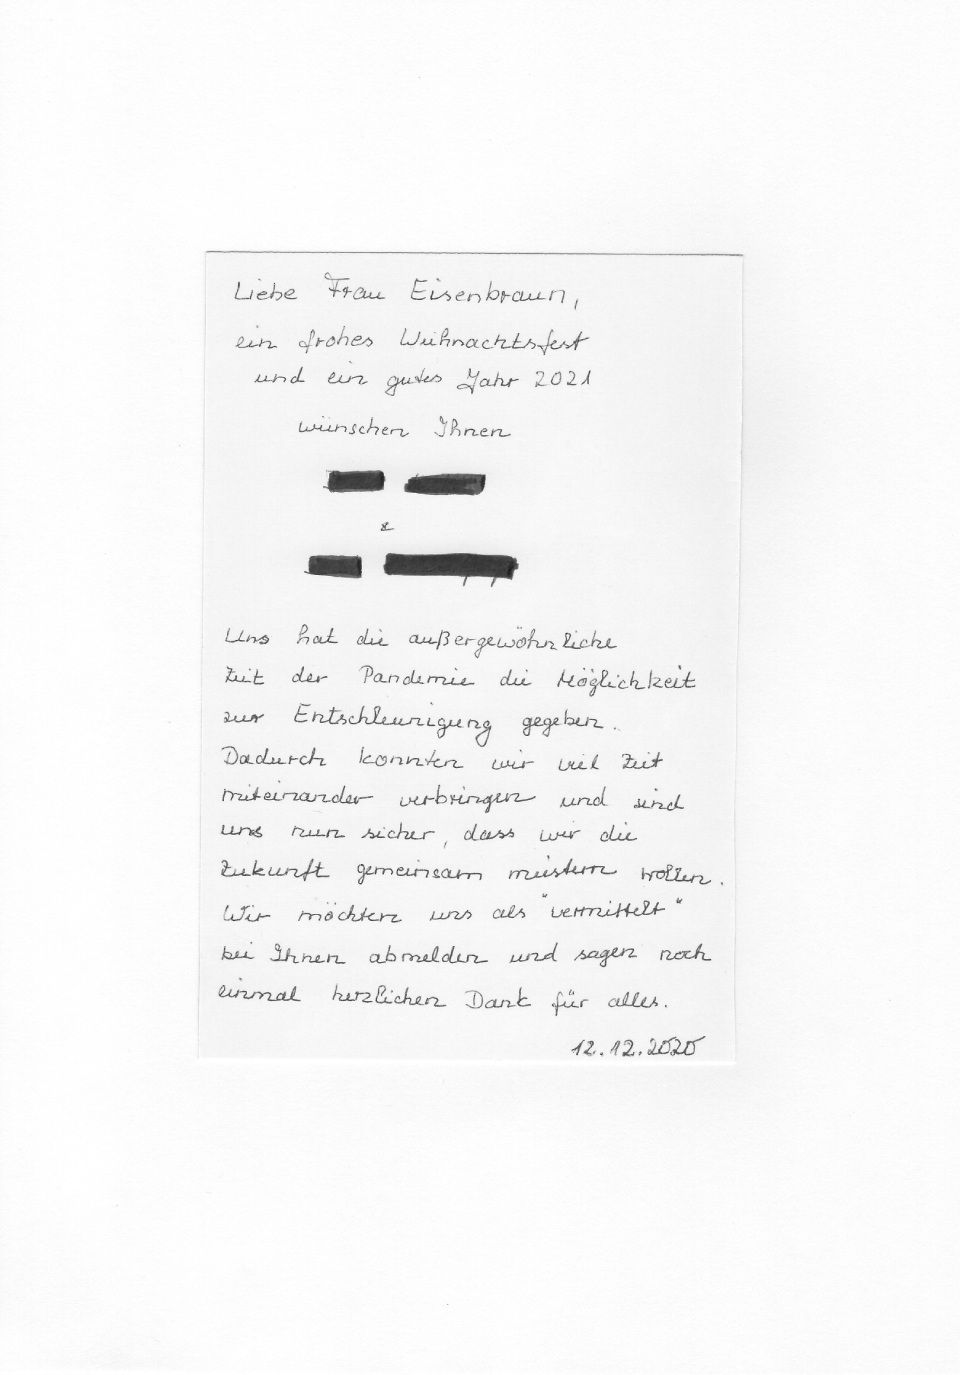 Liebe Frau Eisenbraun,
ein frohes Weihnachtsfest
und ein gutes Jahr 2021
wünschen Ihnen
&
Uns hat die außergewöhnliche
Zeit der Pandemie die Möglichkeit
zur Entschleunigung gegeben.
Dadurch konnten wir viel Zeit
miteinander verbringen und sind
uns nun sicher, dass wir die
Zukunft gemeinsam meistern wollen.
Wir möchten uns als "vermittelt"
bei Ihnen abmelden und sagen noch
einmal herzlichen Dank für alles.
12.12.2020